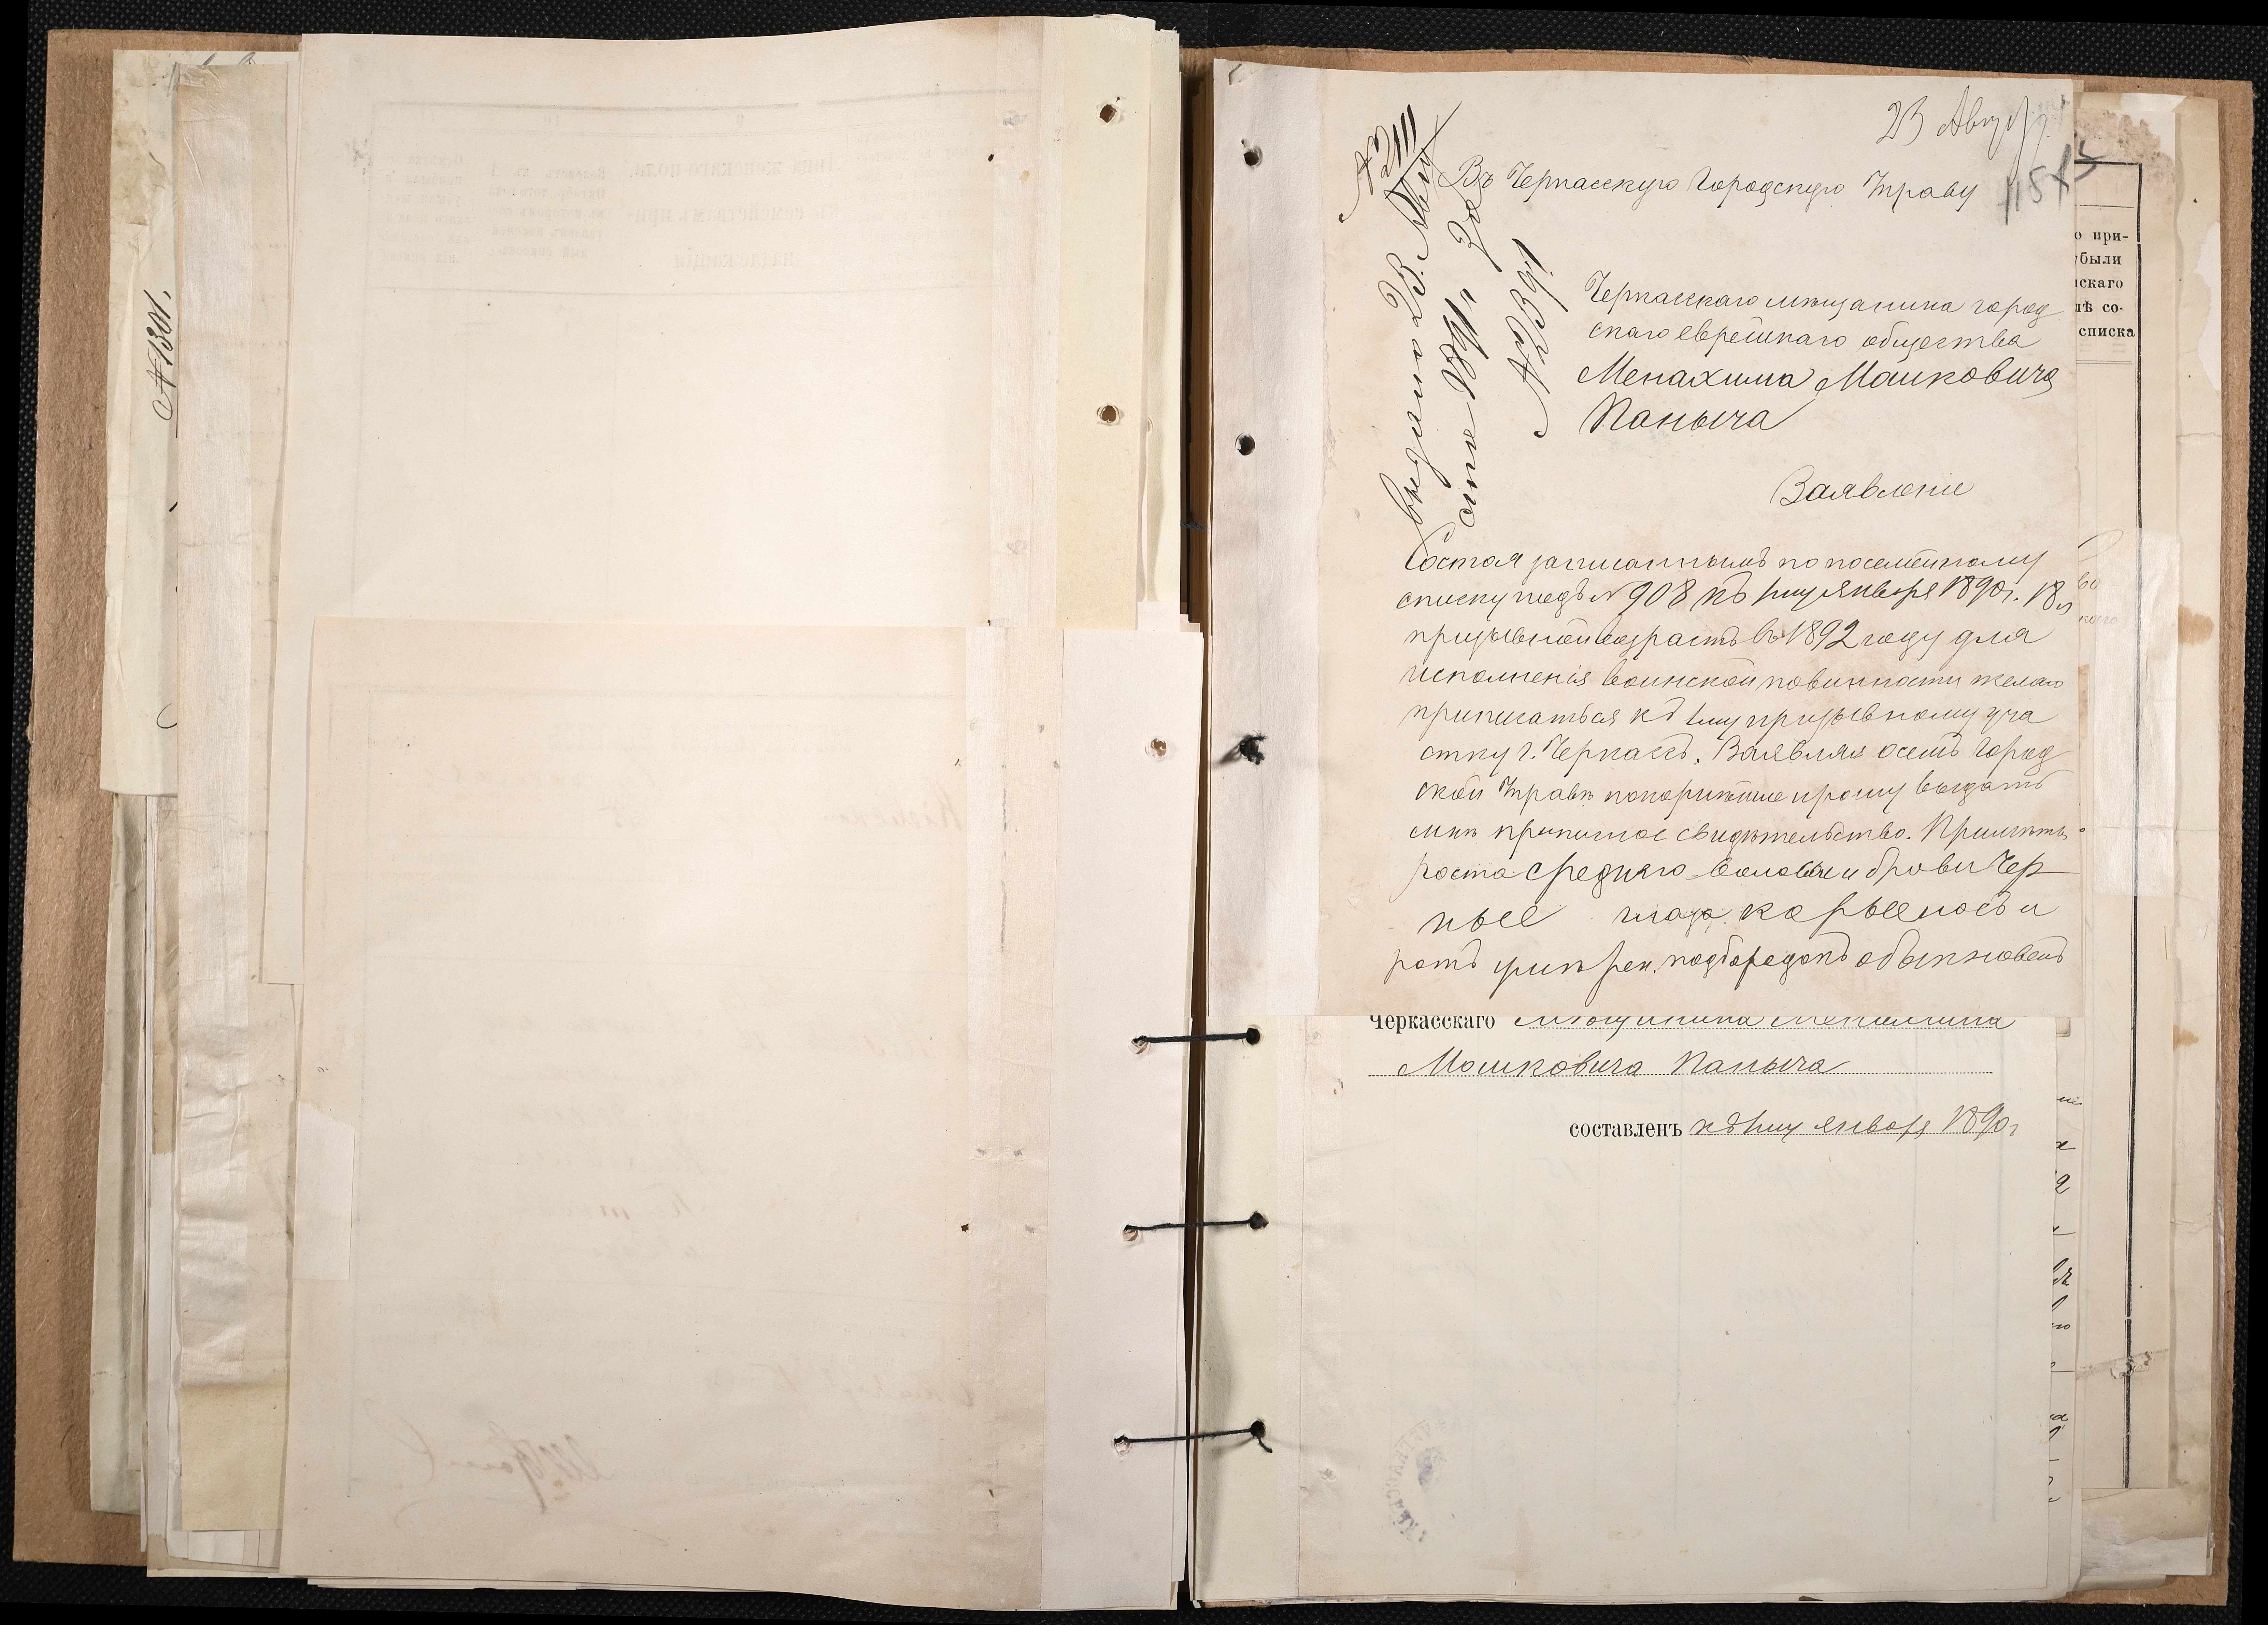 № 1301.
23 Август
1515
№ 2111
Въ Черкасскую Городскую Управу
выдано 23 Авгу
сте 1891 г. за
№ 2391
Черкасскаго мѣщанина город
скаго еврейскаго общества
Менахима Машковича
Паныча
Заявленіе
Состоя записаннымъ по посемейному
списку подъ № 908 къ 1му января 1890г. 18 л
призывной возрастъ въ 1892 году для
исполненія воинской повинности желаю
приписаться къ 1му призывному уча
стку г. Черкассъ. Заявляя о семъ Город
ской Управѣ покорнѣйше прошу выдать
мнѣ приписное свидѣтельство. Примѣты:
роста средняго волосы и брови Чер
ные глаза карые носъ и
ротъ умѣрен. подбородокъ обыкновенъ
Черкасскаго мѣщанина Менахима
Мошковича Паныча
составленъ къ 1му января 1890г
о при-
были
скаго
лѣ со-
списка